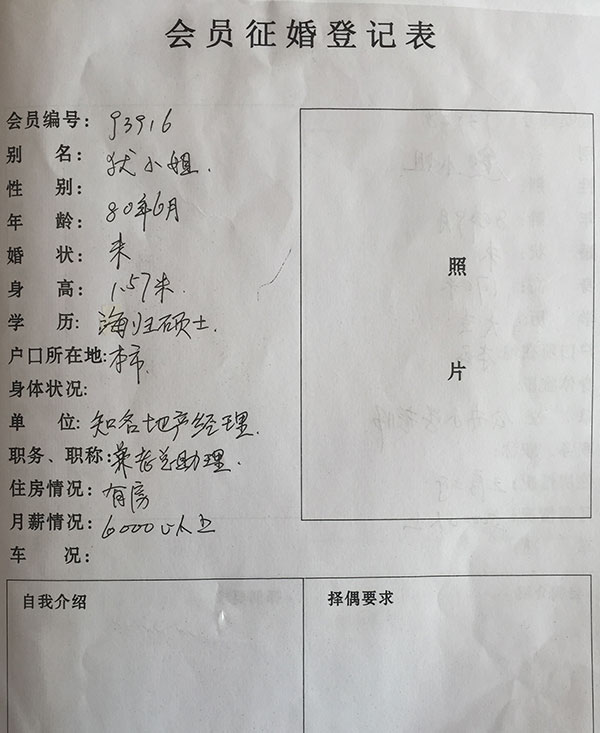 会员征婚登记表
会员编号： 93916
别 名： 状小姐.
性 别：
年 龄： 80年6月
婚 状： 未
身 高： 1.57米
学 历： 海归硕士.
户口所在地： 本市.
身体状况：
单 位： 知名地产经理.
职务、职称： 兼老总助理.
住房情况： 有房
月薪情况： 6000以上
车 况：
照
片
自我介绍
择偶要求